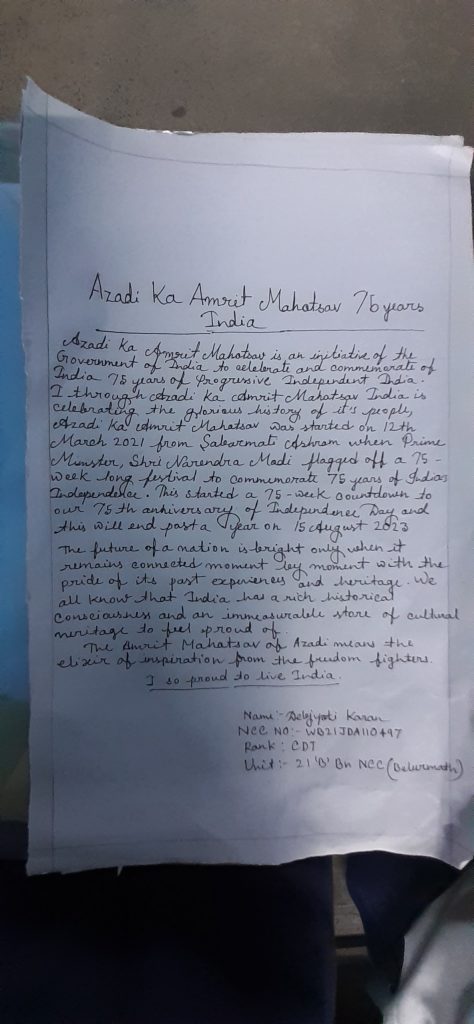 Azadi Ka Amrit Mahotsav 75 years
India
Azadi Ka Amrit Mahotsav is an initiative of the
Government of India to celebrate and commemorate of
India 75 years of Progressive Independent India.
I through Azadi Ka Amrit Mahatsav India is
celebrating the glorious history of it's people,
Azadi Ka Amrit Mahatsav was started on 12th
March 2021 from Sabarmati Ashram when Prime
Munster, Shri Narendra Modi flagged off a 75 -
week long festival to commemorate 75 years of Indias
Independence. This started a 75-week countdown to
our 75th anhiversary of Independence Day and
this will end past a year on 15 August 2023
The future of a nation is bright only when it
remains connected moment by moment with the
pride of its past experiences and heritage. We
all know that India has a rich historical
Consciousness and an immeasurable store of cultural
heritage to feel proud of.
The Amrit Mahatsav of Azadi means the
elixir of inspiration from the freedom fighters.
I so proud to live India.
Name:- Debjyoti Karan
NCC NO:- WB21JDA110497
Rank : CDT
Unit:- 21 'B' Bn NCC (Belurmath)